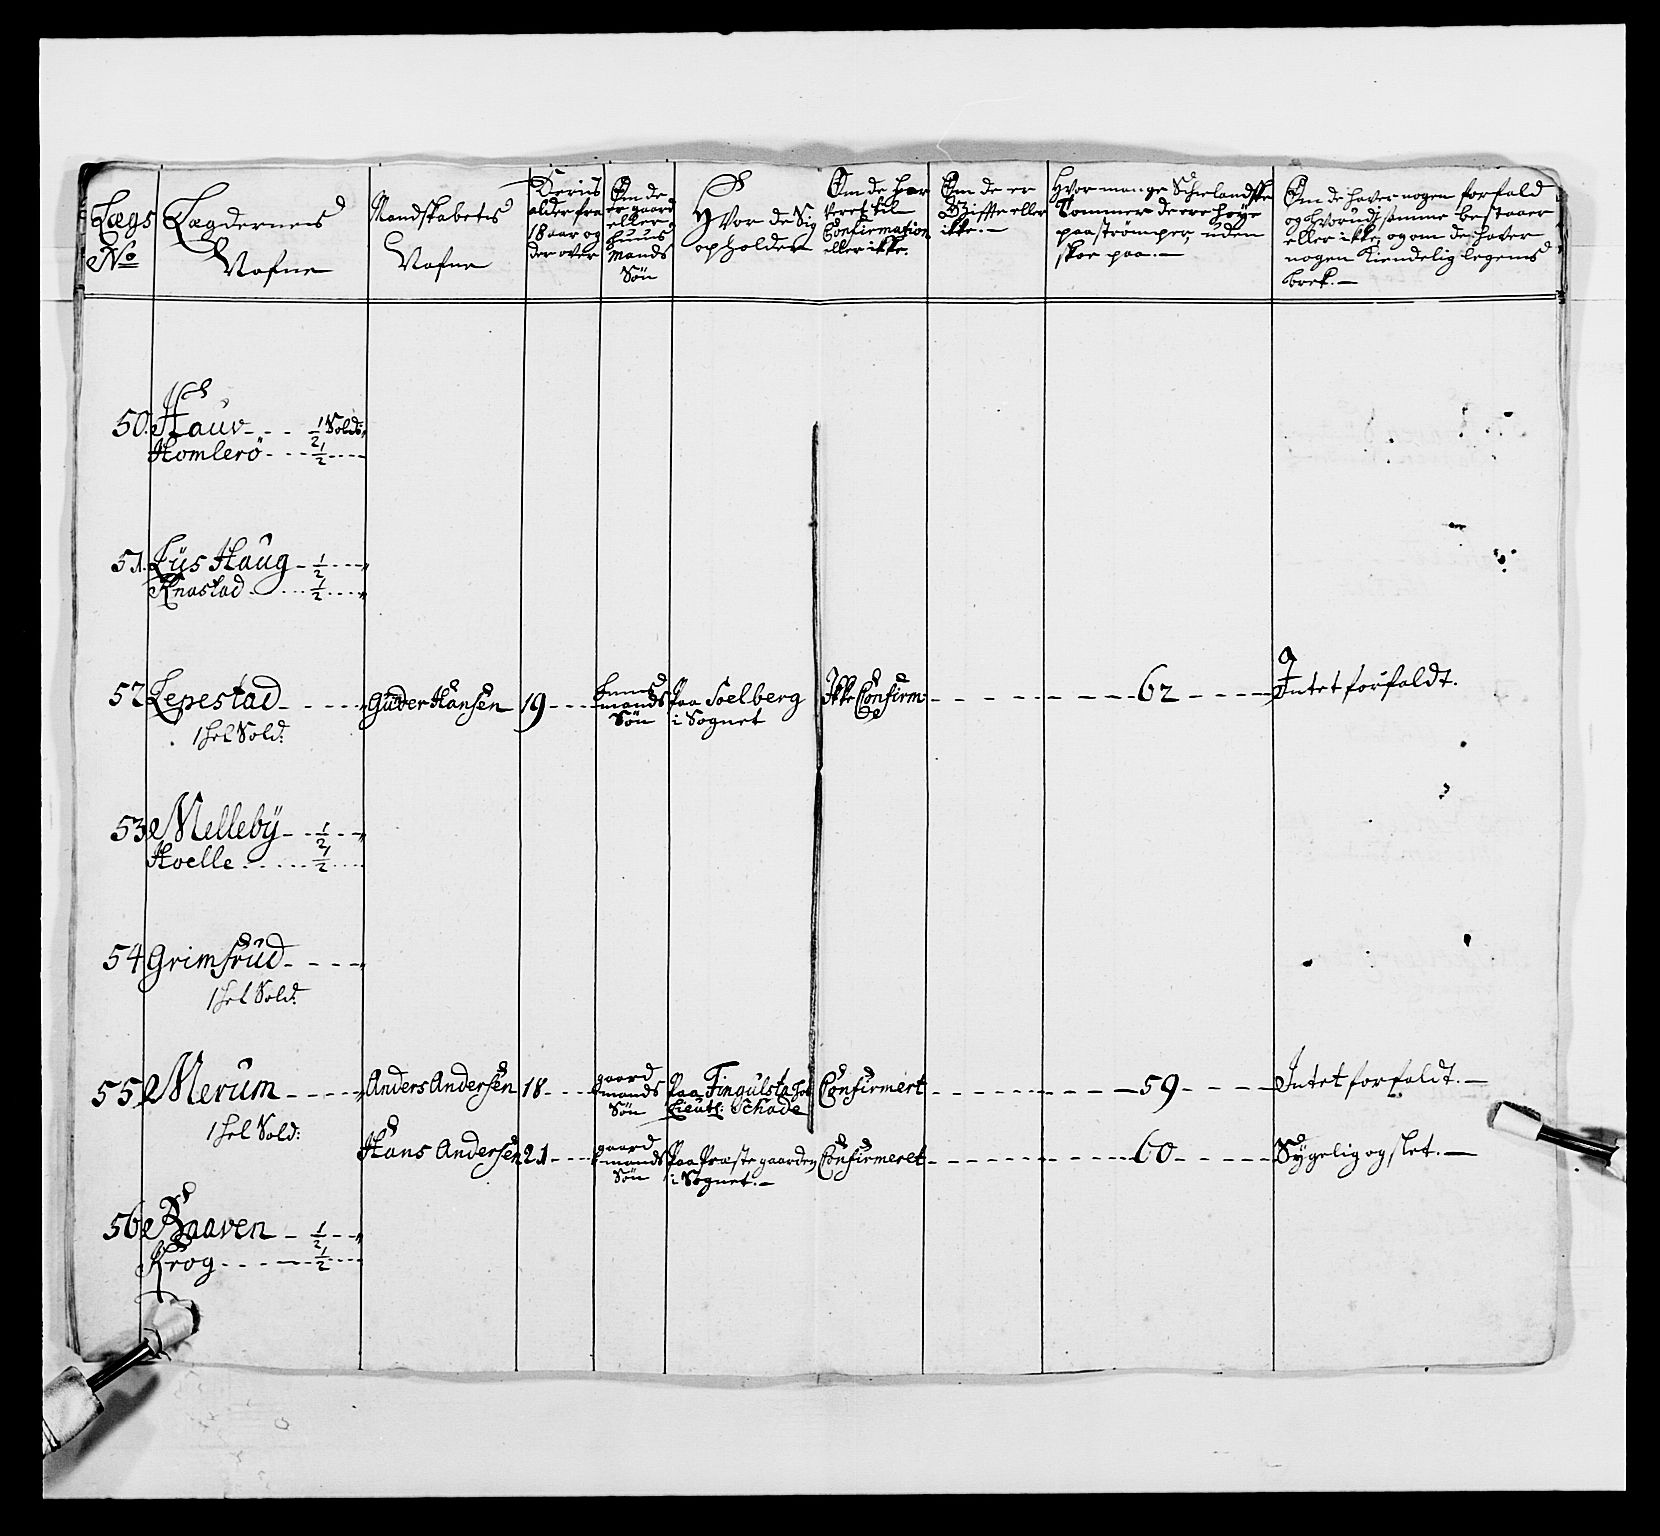 Lægs
No
Lægdernes
Nafne
Mandskabetis
Nafne
Deris
alder fra
18 aar og
der over
Om de
er gaard
eller
huus
mands
Søn
Hvor de Sig
opholder
Om de har
veret til
Confirmation
eller ikke.
Om de er
Giffte eller
ikke.—
Hvor mange Schielandske
Tommer de ere høye
paa strømper, uden
skoe paa.—
Om de haver nogen forfald
og hvorudj samme bestaaer
eller ikke, og om de haver
nogen Kiendelig legems
brek.—
50. Hauv - - - 1/2 Sold:
Homlerö - - - 1/2 - - -
51. Liis Haug - 1/2 - - -
Knastad - - - 1/2 - - -
52 Lepestad - - - - Guder Hansen 19 - - - Huus mands Søn Paa Soelberg i Sognet Ikke Confirm - - - - - - 62 - - - - Intet forfaldt.
1 hel Sold:
53 Melleby - - 1/2 - - -
Hoelle - - - - 1/2 - - -
54 Grimsrud - - - -
1 hel Sold:
55 Merum - - - - Anders Andersen 18 - - - gaard mands Søn Paa Fingulsta hos Lieut: Schade Confirmert - - - - - - 59 - - - - Intet forfaldt.—
1 hel Sold:
Hans Andersen 21 - - - gaard mands Søn Paa Præstegaarden i Sognet.— Confirmeret - - - - - - 60 - - - - Sygelig og slet.—
56 Raaven - 1/2 - - -
Krog - - - - 1/2 - - -